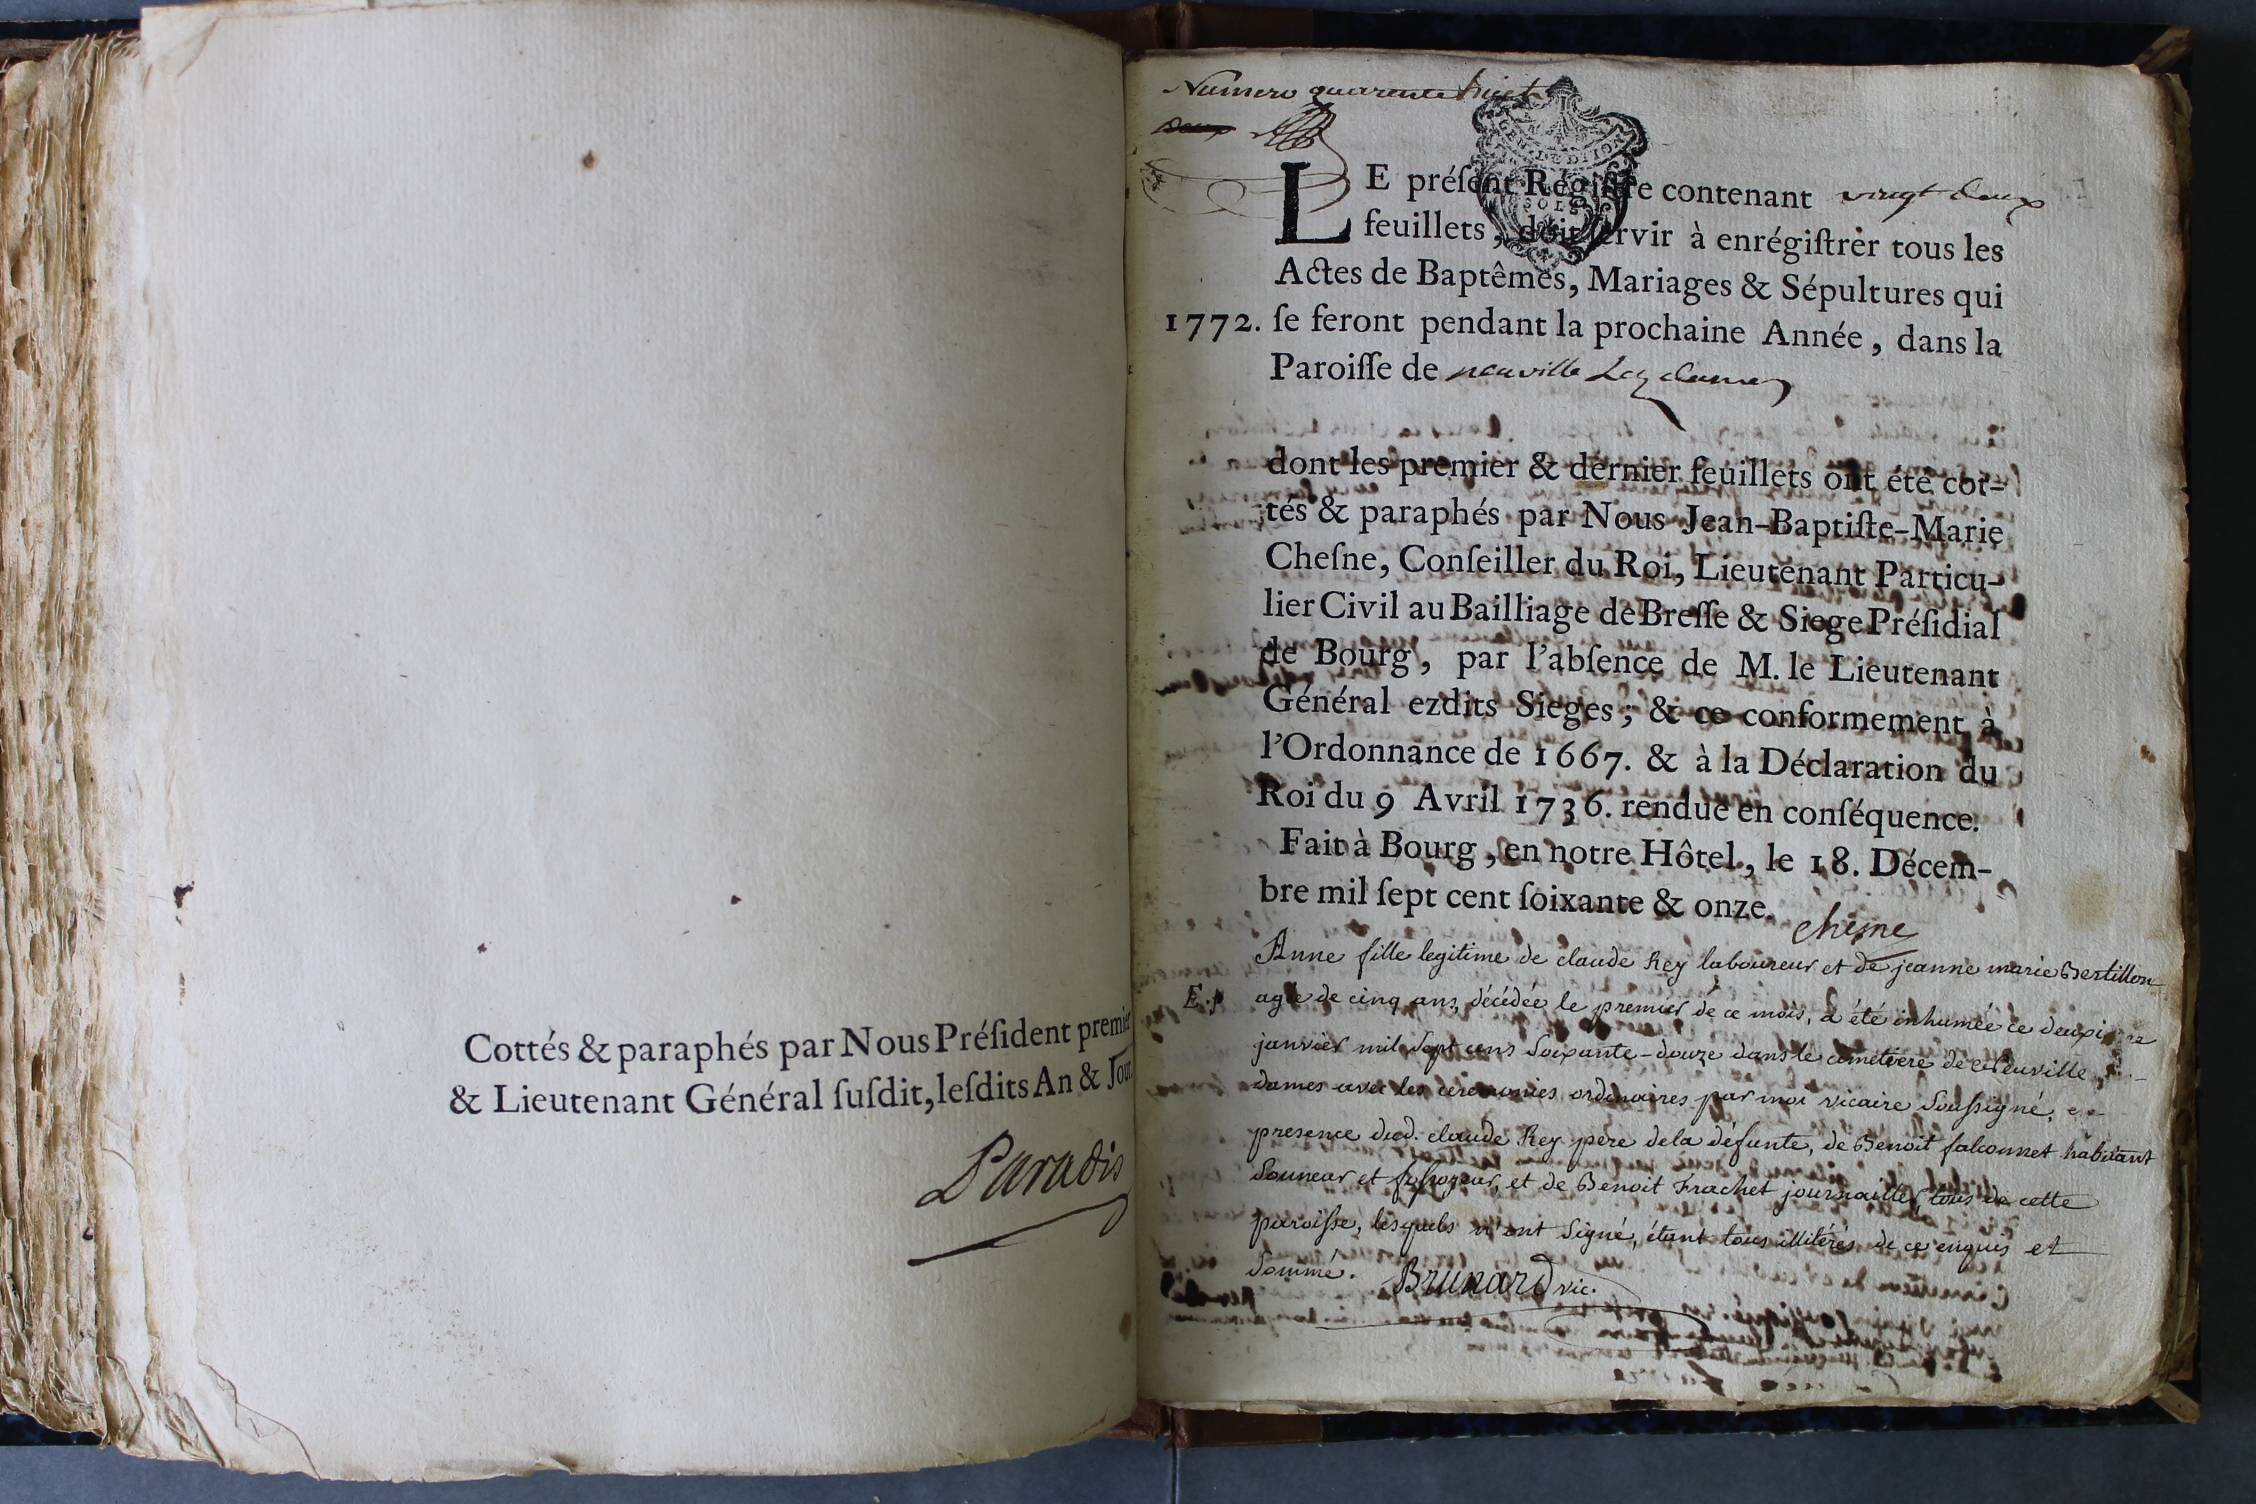 Cottés & paraphés par Nous Préſident premier
& Lieutenant Général ſuſdit, leſdits An & Jour.
Paradis
Numero quarente huict
GEN. DE DIJON
SOLS
LE préſent Régiſtre contenant vingt deux
feuillets, doit ſervir à enrégiſtrer tous les
Actes de Baptêmes, Mariages & Sépultures qui
1772. ſe feront pendant la prochaine Année, dans la
Paroiſſe de neuville Lez dames
dont les premier & dernier feuillets ont été cot-
tés & paraphés par Nous Jean-Baptiſte-Marie
Cheſne, Conſeiller du Roi, Lieutenant Particu-
lier Civil au Bailliage de Breſſe & Siege Préſidial
de Bourg, par l'abſence de M. le Lieutenant
Général ezdits Sieges; & ce conformement à
l'Ordonnance de 1667. & à la Déclaration du
Roi du 9 Avril 1736. rendue en conſéquence.
Fait à Bourg, en notre Hôtel, le 18. Décem-
bre mil ſept cent ſoixante & onze.
chesne
Anne fille legitime de claude Rey laboureur et de jeanne marie Bertillon
E.p agée de cinq ans, décédée le premier de ce mois, a été inhumée ce deuxieme
janvier mil sept cens soixante-douze dans le cimetiere de Neuville
dames avec les ceremonies ordinaires par moi vicaire soussigné, en
presence dud. claude Rey pere de la défunte, de Benoit falconnet habitant
sonneur et fossoyeur, et de Benoit Frachet journailler, tous de cette
paroisse, lesquels n'ont signé, étant tous illitérés de ce enquis et
sommé. Brunard vic.